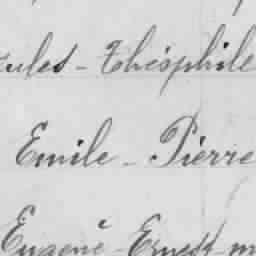 Jules - Théophile
Emile - Pierre
Eugène - Ernest